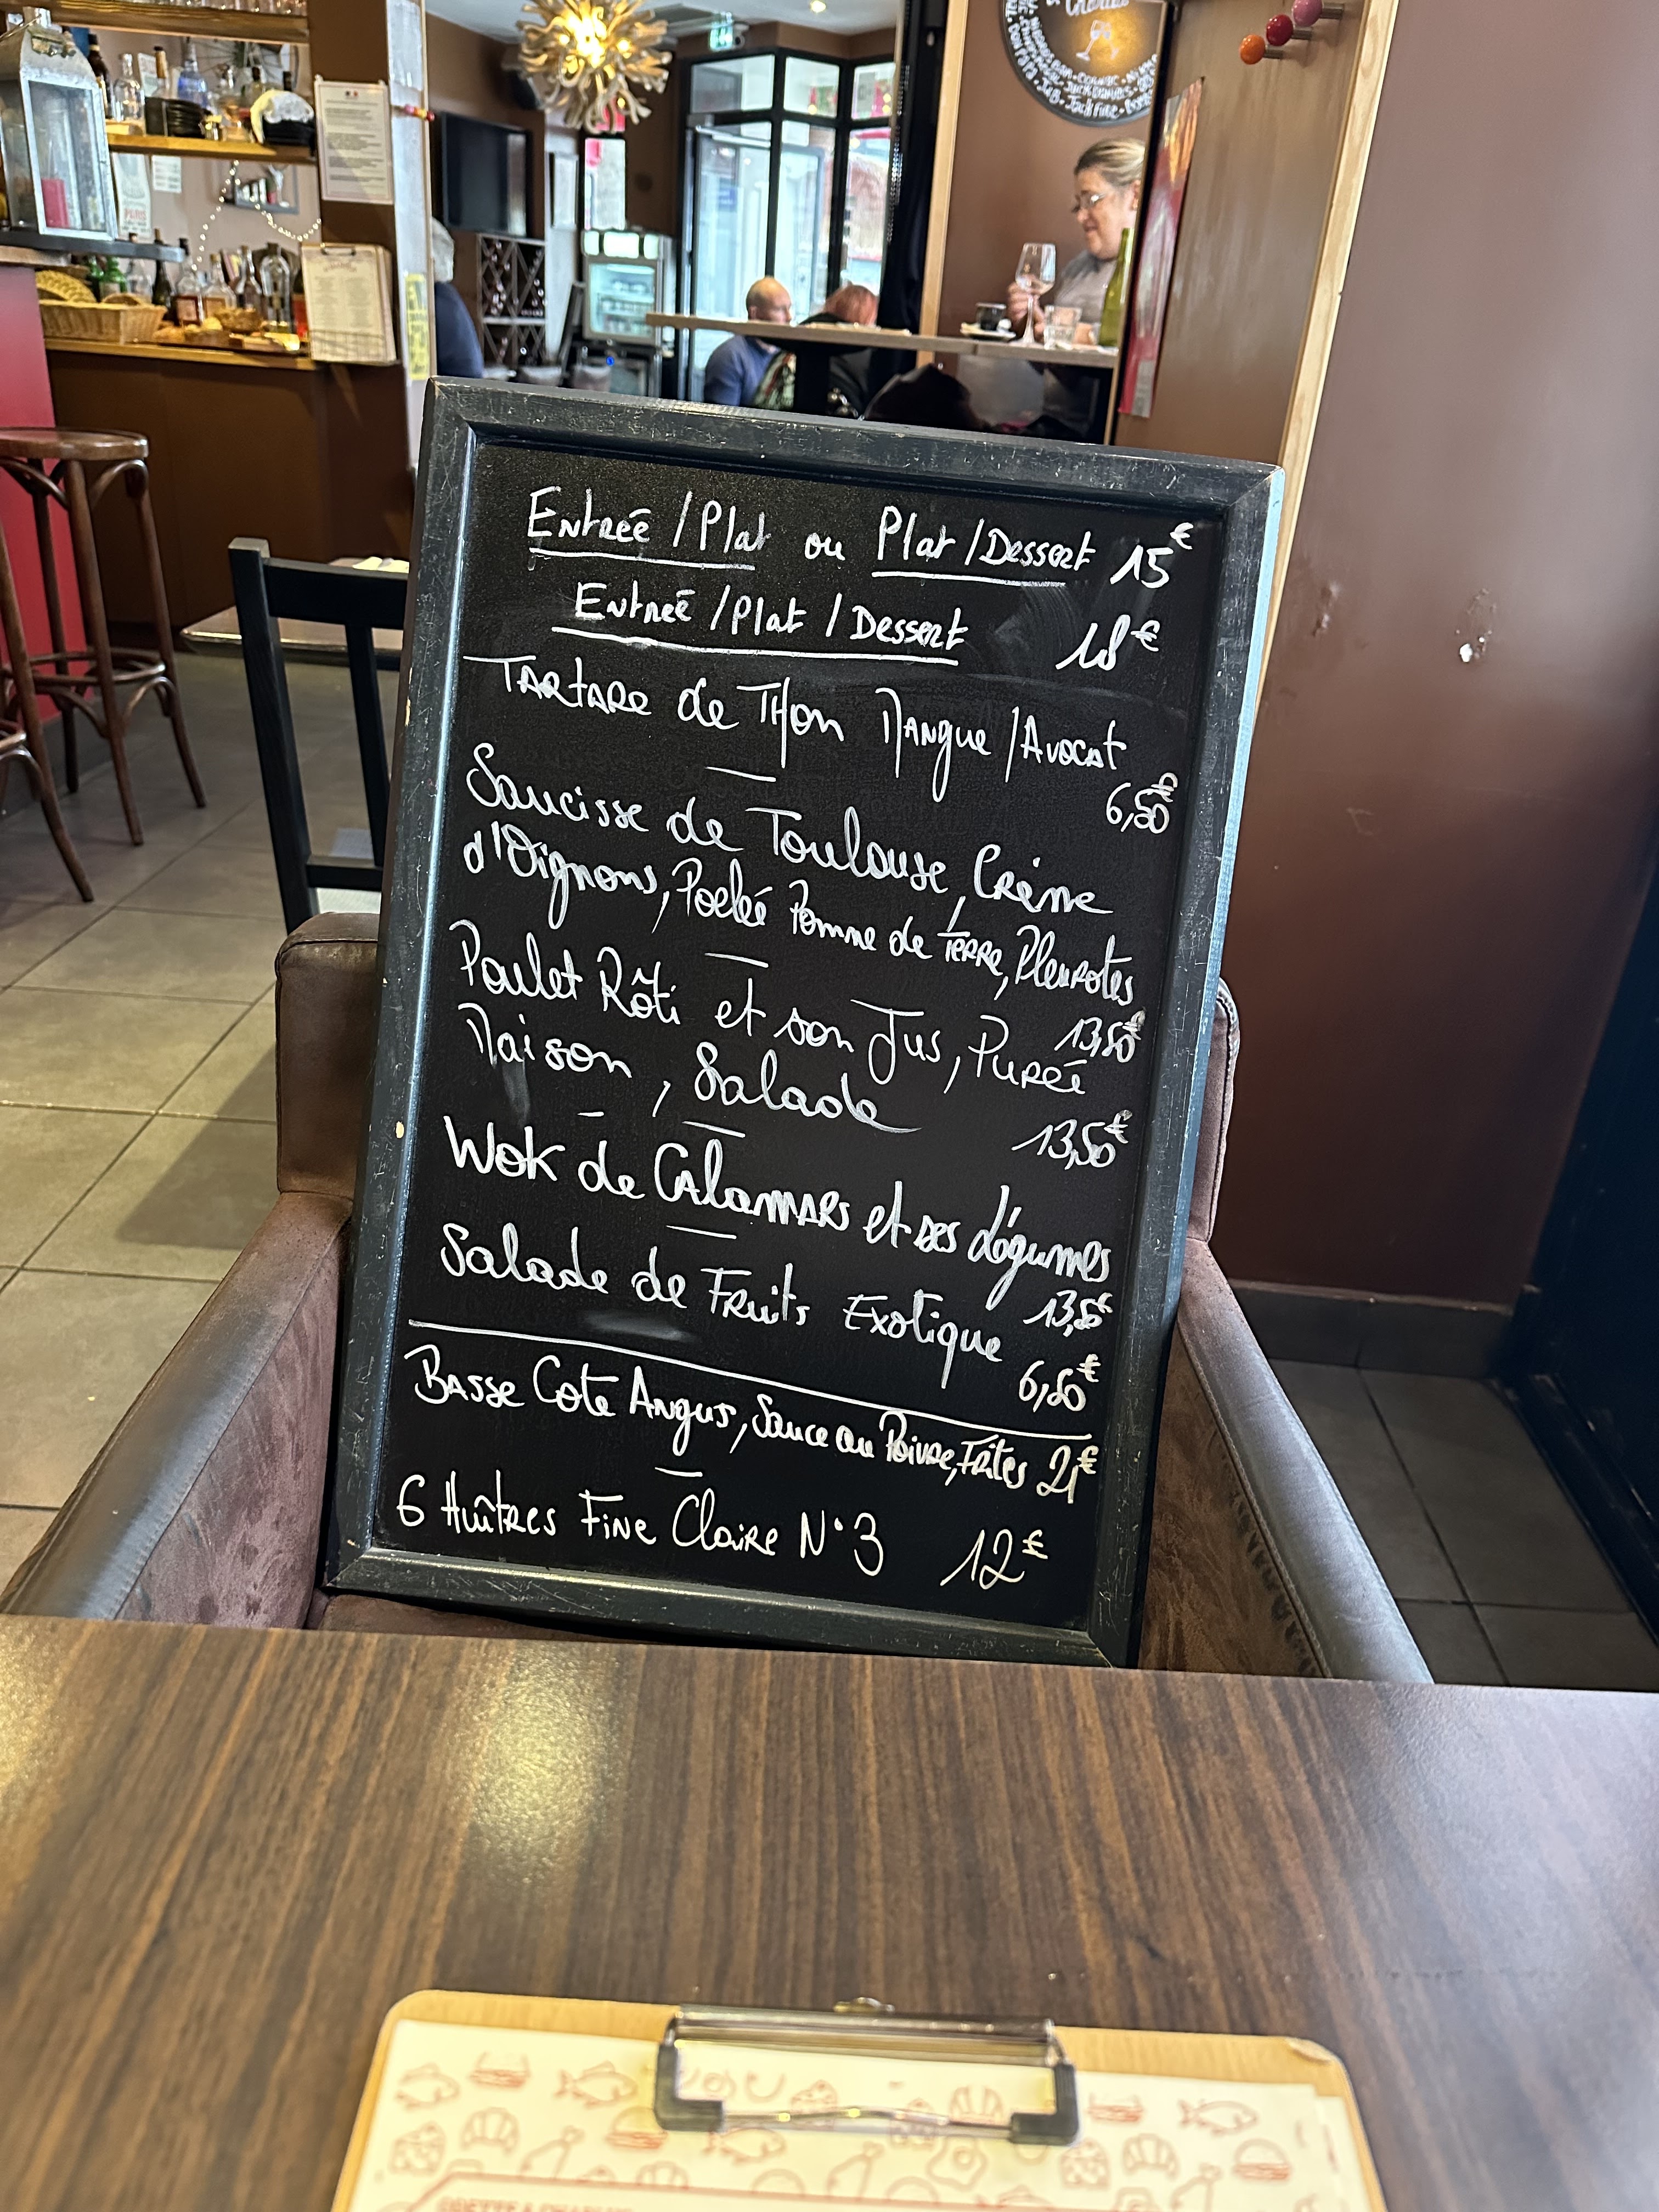 Entrée / Plat ou Plat / Dessert 15€
Entrée / Plat / Dessert 18€
Tartare de Thon Mangue / Avocat
6,50€
Saucisse de Toulouse, Crème
d'Oignons, Poelée Pomme de Terre, Pleurotes
13,50€
Poulet Rôti et son Jus, Purée
Maison, Salade
13,50€
Wok de Calamars et ses Légumes
13,50€
Salade de Fruits Exotique
6,50€
Basse Cote Angus, Sauce au Poivre, Frites 21€
6 Huîtres Fine Claire N°3 12€